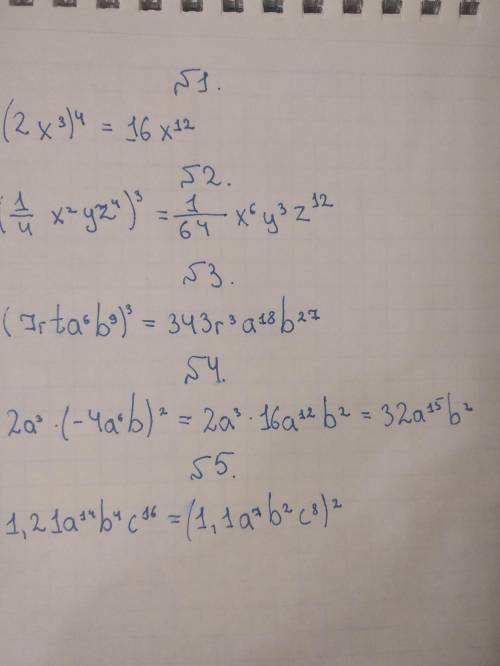 №1.
(2x³)⁴ = 16x¹²
№2.
(1/4 x²yz⁴)³ = 1/64 x⁶y³z¹²
№3.
(7rta⁶b⁹)³ = 343r³a¹⁸b²⁷
№4.
2a³·(-4a⁶b)² = 2a³·16a¹²b² = 32a¹⁵b²
№5.
1,21a¹⁴b⁴c¹⁶ = (1,1a⁷b²c⁸)²